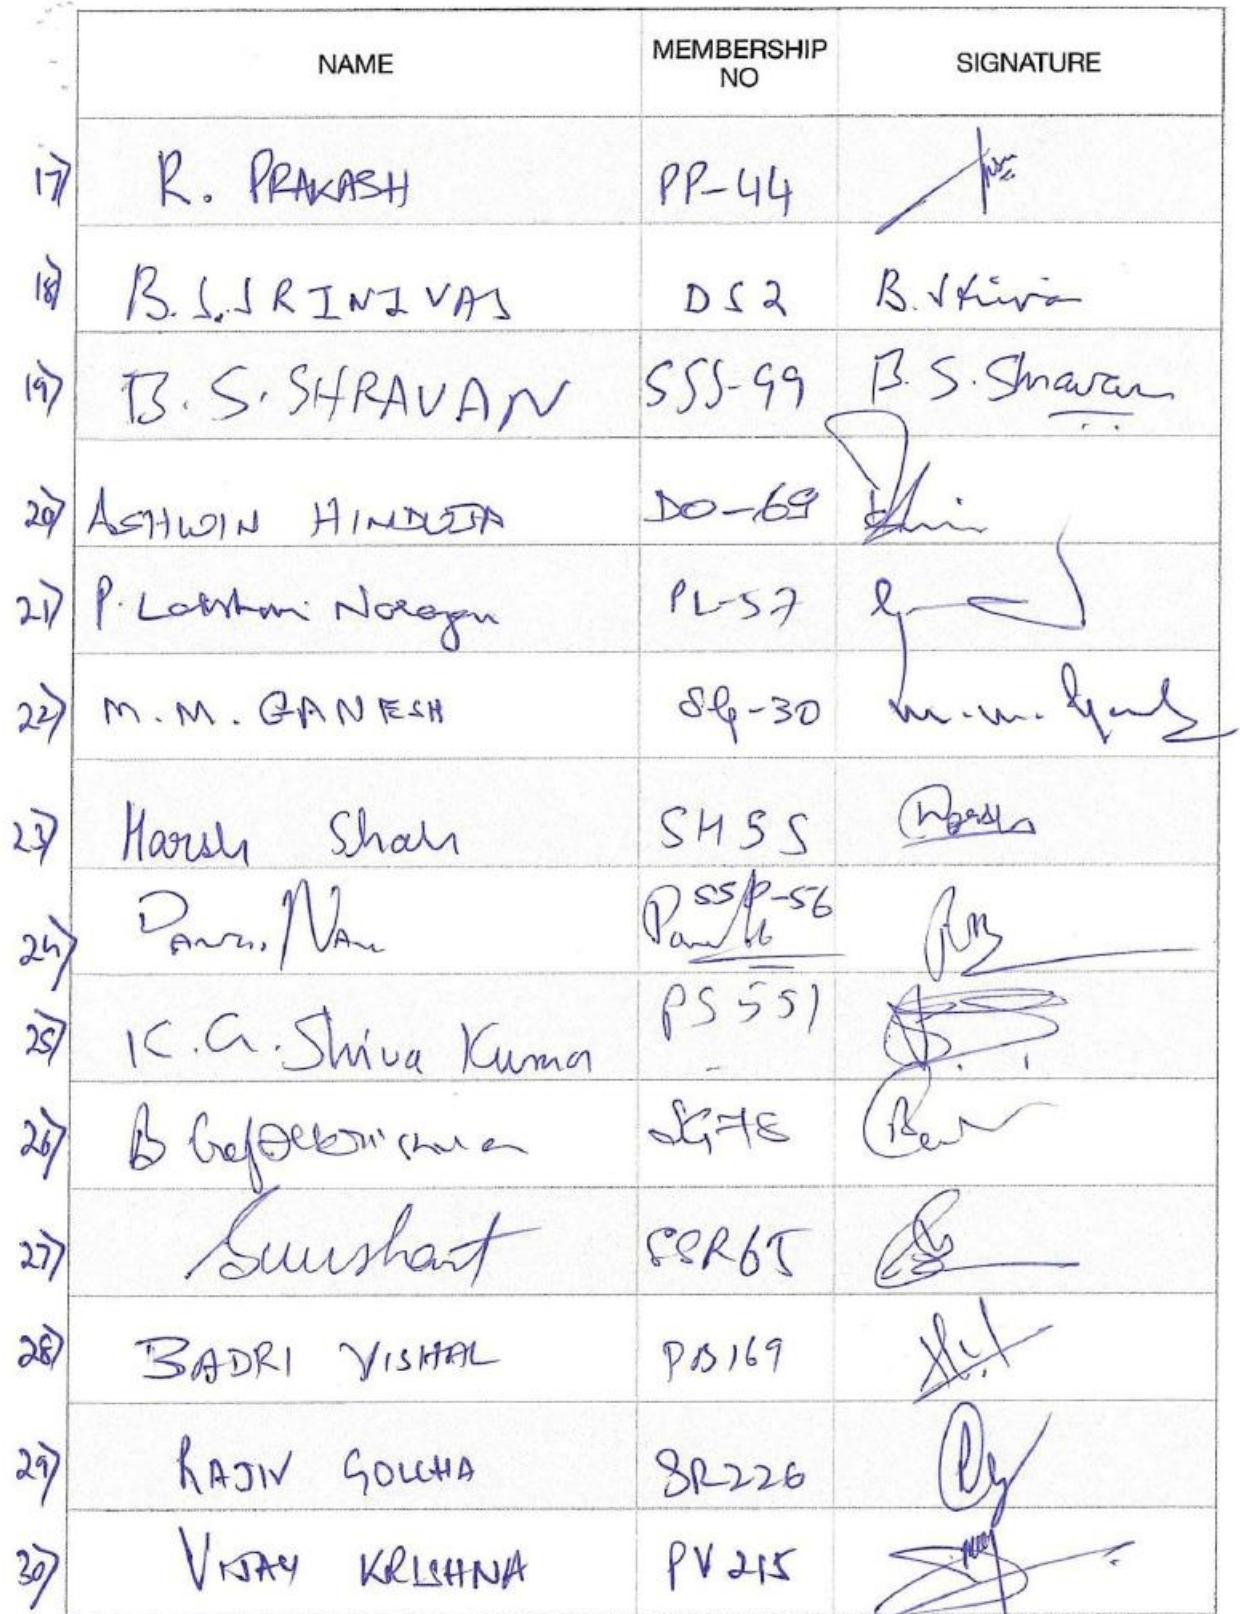 NAME MEMBERSHIP NO SIGNATURE
17) R. PRAKASH PP-44
18) B.S.SRINIVAS DS2 B.
19) B.S.SHRAVAN SSS-99 B.S.Shravan
20) ASHWIN HINDUJA DO-69
21) P. Lakshmi Narayan PL-57
22) M.M. GANESH SG-30 m.m.
23) Harsh Shah SH55 Harsh
24) SSP-56
25) K.G. Shiva Kumar PS 551
26) B Gopalkrishnan SG78
27) SSR65
28) BADRI VISHAL PB169
29) RAJIV GOLCHA SR226
30) VIJAY KRISHNA PV 215